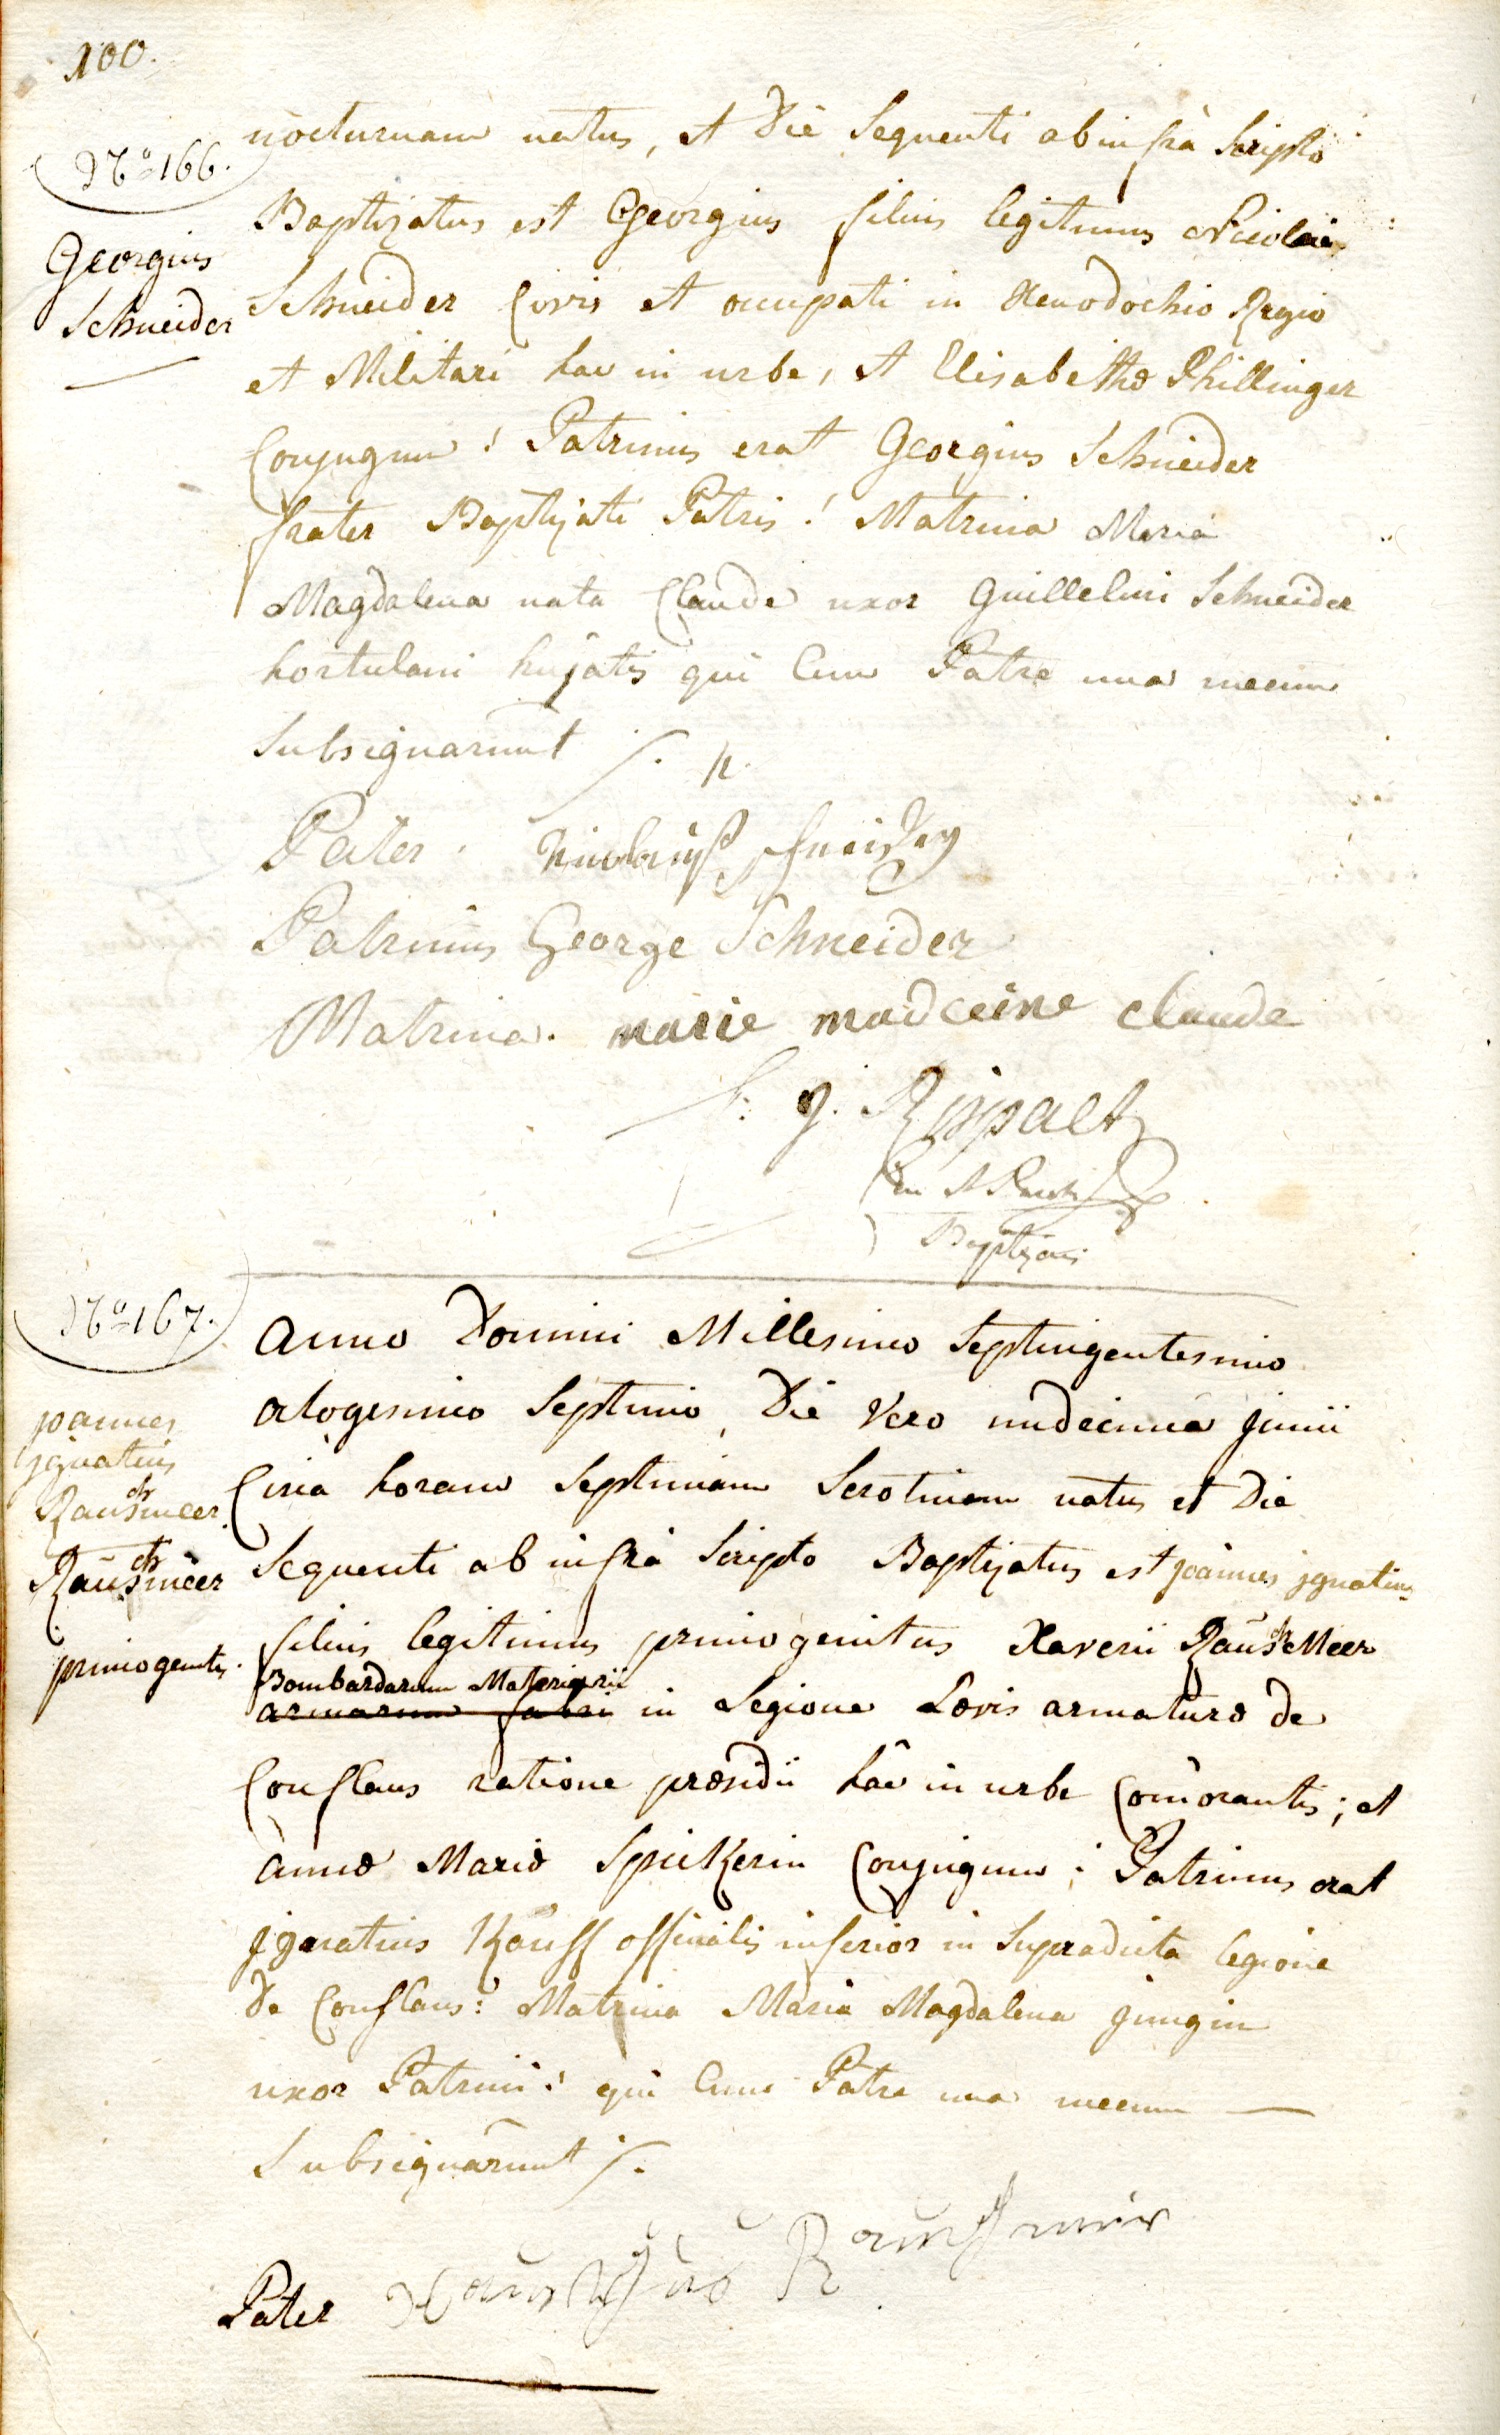 100.
No 166.
Georgius
Schneider
nocturnam natus, et Die Sequenti ab infrà Scripto
Baptizatus est Georgius filius legitimus Nicolai
Schneider Civis et occupati in Xenodochio Regio
et Militari hac in urbe, et Elisabethæ Phillinger
Conjugum: Patrinus erat Georgius Schneider
frater Baptizati Patris: Matrina Maria
Magdalena nata Claude uxor Guillelmi Schneider
hortulani hujatis qui Cum Patre una mecum
Subsignarunt ·/.
Pater. Nicolauß Schneider
Patrinus George Schneider
Matrina. marie madeeine claude
J. Rispalt
Baptizavi
No 167.
joannes
jgnatius
Rauschmeer.
Rauschmeer
primogenitus.
Anno Domini Millesimo Septingentesimo
octogesimo Septimo, Die Vero undecima junii
Circa horam Septimam Serotinam natus et Die
Sequenti ab infrà Scripto Baptizatus est joannes jgnatius
filius legitimus primogenitus Xaverii RauschMeer
Bombardarum Materiarii
armarum fabri in Legione Lævis armaturæ de
Conflans ratione præsidii hâc in urbe Com̃orantis; et
Annæ Mariæ Spickerin Conjugum: Patrinus erat
jgnatius Kauff officialis inferior in Supradicta legione
de Conflans: Matrina Maria Magdalena jungin
uxor Patrini: qui Cum Patre una mecum —
Subsignârunt ·/.
Pater